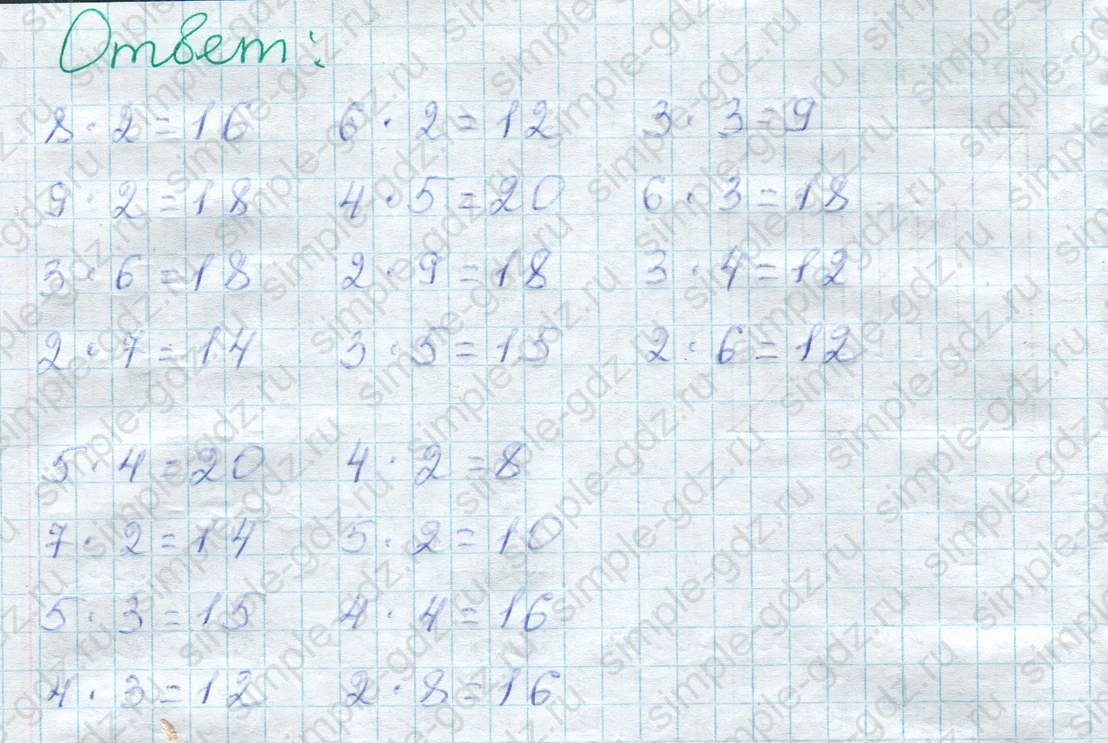 Ответ:
8 · 2 = 16 6 · 2 = 12 3 · 3 = 9
9 · 2 = 18 4 · 5 = 20 6 · 3 = 18
3 · 6 = 18 2 · 9 = 18 3 · 4 = 12
2 · 7 = 14 3 · 5 = 15 2 · 6 = 12
5 · 4 = 20 4 · 2 = 8
7 · 2 = 14 5 · 2 = 10
5 · 3 = 15 4 · 4 = 16
4 · 3 = 12 2 · 8 = 16
simple-gdz.ru